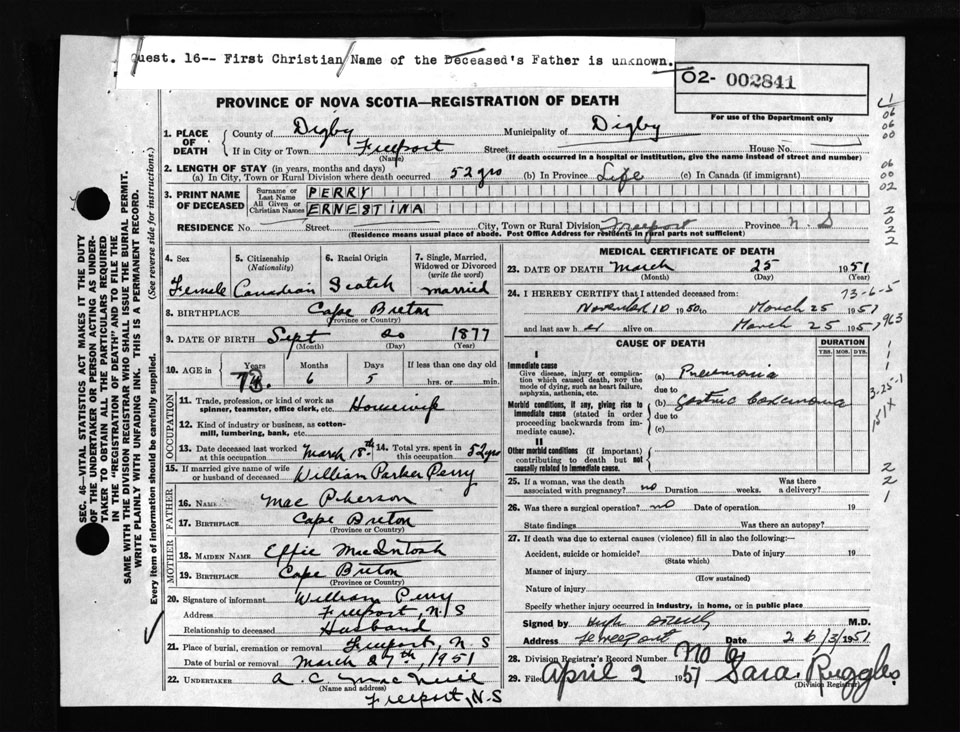 Quest. 16-- First Christian Name of the Deceased's Father is unknown.
O2- 002841
PROVINCE OF NOVA SCOTIA—REGISTRATION OF DEATH
For use of the Department only
1. PLACE OF DEATH
County of Digby Municipality of Digby
If in City or Town Freeport Street House No.
(Name) (If death occurred in a hospital or institution, give the name instead of street and number)
2. LENGTH OF STAY (in years, months and days)
(a) In City, Town or Rural Division where death occurred 52 yrs (b) In Province Life (c) In Canada (if immigrant)
3. PRINT NAME OF DECEASED
Surname or Last Name PERRY
All Given or Christian Names ERNESTINA
RESIDENCE No. Street City, Town or Rural Division Freeport Province N. S
(Residence means usual place of abode. Post Office Address for residents in rural parts not sufficient)
4. Sex Female
5. Citizenship (Nationality) Canadian
6. Racial Origin Scotch
7. Single, Married, Widowed or Divorced (write the word) married
8. BIRTHPLACE Cape Breton
(Province or Country)
9. DATE OF BIRTH Sept 20 1877
(Month) (Day) (Year)
10. AGE in Years Months Days If less than one day
73 6 5 hrs. or min.
OCCUPATION
11. Trade, profession, or kind of work as spinner, teamster, office clerk, etc. Housewife
12. Kind of industry or business, as cotton-mill, lumbering, bank, etc.
13. Date deceased last worked at this occupation March 18th
14. Total yrs. spent in this occupation 52 yrs
15. If married give name of wife or husband of deceased William Parker Perry
FATHER
16. NAME Mac Pherson
17. BIRTHPLACE Cape Breton
(Province or Country)
MOTHER
18. MAIDEN NAME Effie MacIntosh
19. BIRTHPLACE Cape Breton
(Province or Country)
20. Signature of informant William Perry
Address Freeport, N.S
Relationship to deceased Husband
21. Place of burial, cremation or removal Freeport, N. S
Date of burial or removal March 27th, 1951
22. UNDERTAKER A. C. MacNeill
(Name and address)
Freeport, N.S
MEDICAL CERTIFICATE OF DEATH
23. DATE OF DEATH March 25 1951
(Month) (Day) (Year)
73-6-5
24. I HEREBY CERTIFY that I attended deceased from:
November 10 1950 to March 25 1951
and last saw her alive on March 25 1951
963
CAUSE OF DEATH DURATION
YRS. MOS. DYS.
I
Immediate cause
Give disease, injury or complication which caused death, not the mode of dying, such as heart failure, asphyxia, asthenia, etc.
(a) Pneumonia
due to
Morbid conditions, if any, giving rise to immediate cause (stated in order proceeding backwards from immediate cause).
(b) Gastric carcinoma
due to
(c)
II
Other morbid conditions (if important) contributing to death but not causally related to immediate cause.
3-25-1
151X
25. If a woman, was the death associated with pregnancy? no Duration weeks. Was there a delivery?
26. Was there a surgical operation? no Date of operation 19
State findings Was there an autopsy?
27. If death was due to external causes (violence) fill in also the following:—
Accident, suicide or homicide? Date of injury 19
(State which)
Manner of injury
(How sustained)
Nature of injury
Specify whether injury occurred in industry, in home, or in public place
Signed by M.D.
Address Freeport Date 26/3/1951
28. Division Registrar's Record Number No 9
29. Filed April 2 1951 Sara Ruggles
(Division Registrar)
SEC. 46—VITAL STATISTICS ACT MAKES IT THE DUTY
OF THE UNDERTAKER OR PERSON ACTING AS UNDER-
TAKER TO OBTAIN ALL THE PARTICULARS REQUIRED
IN THE "REGISTRATION OF DEATH" AND TO FILE THE
SAME WITH THE DIVISION REGISTRAR WHO SHALL ISSUE THE BURIAL PERMIT.
WRITE PLAINLY WITH UNFADING INK. THIS IS A PERMANENT RECORD.
Every item of information should be carefully supplied. (See reverse side for instructions.)